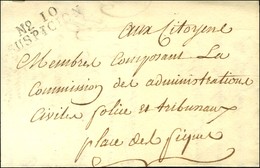 No. 10
aux Citoyens
Membres Composant La
Commission des administrations
Civiles Police et tribunaux
place des piques